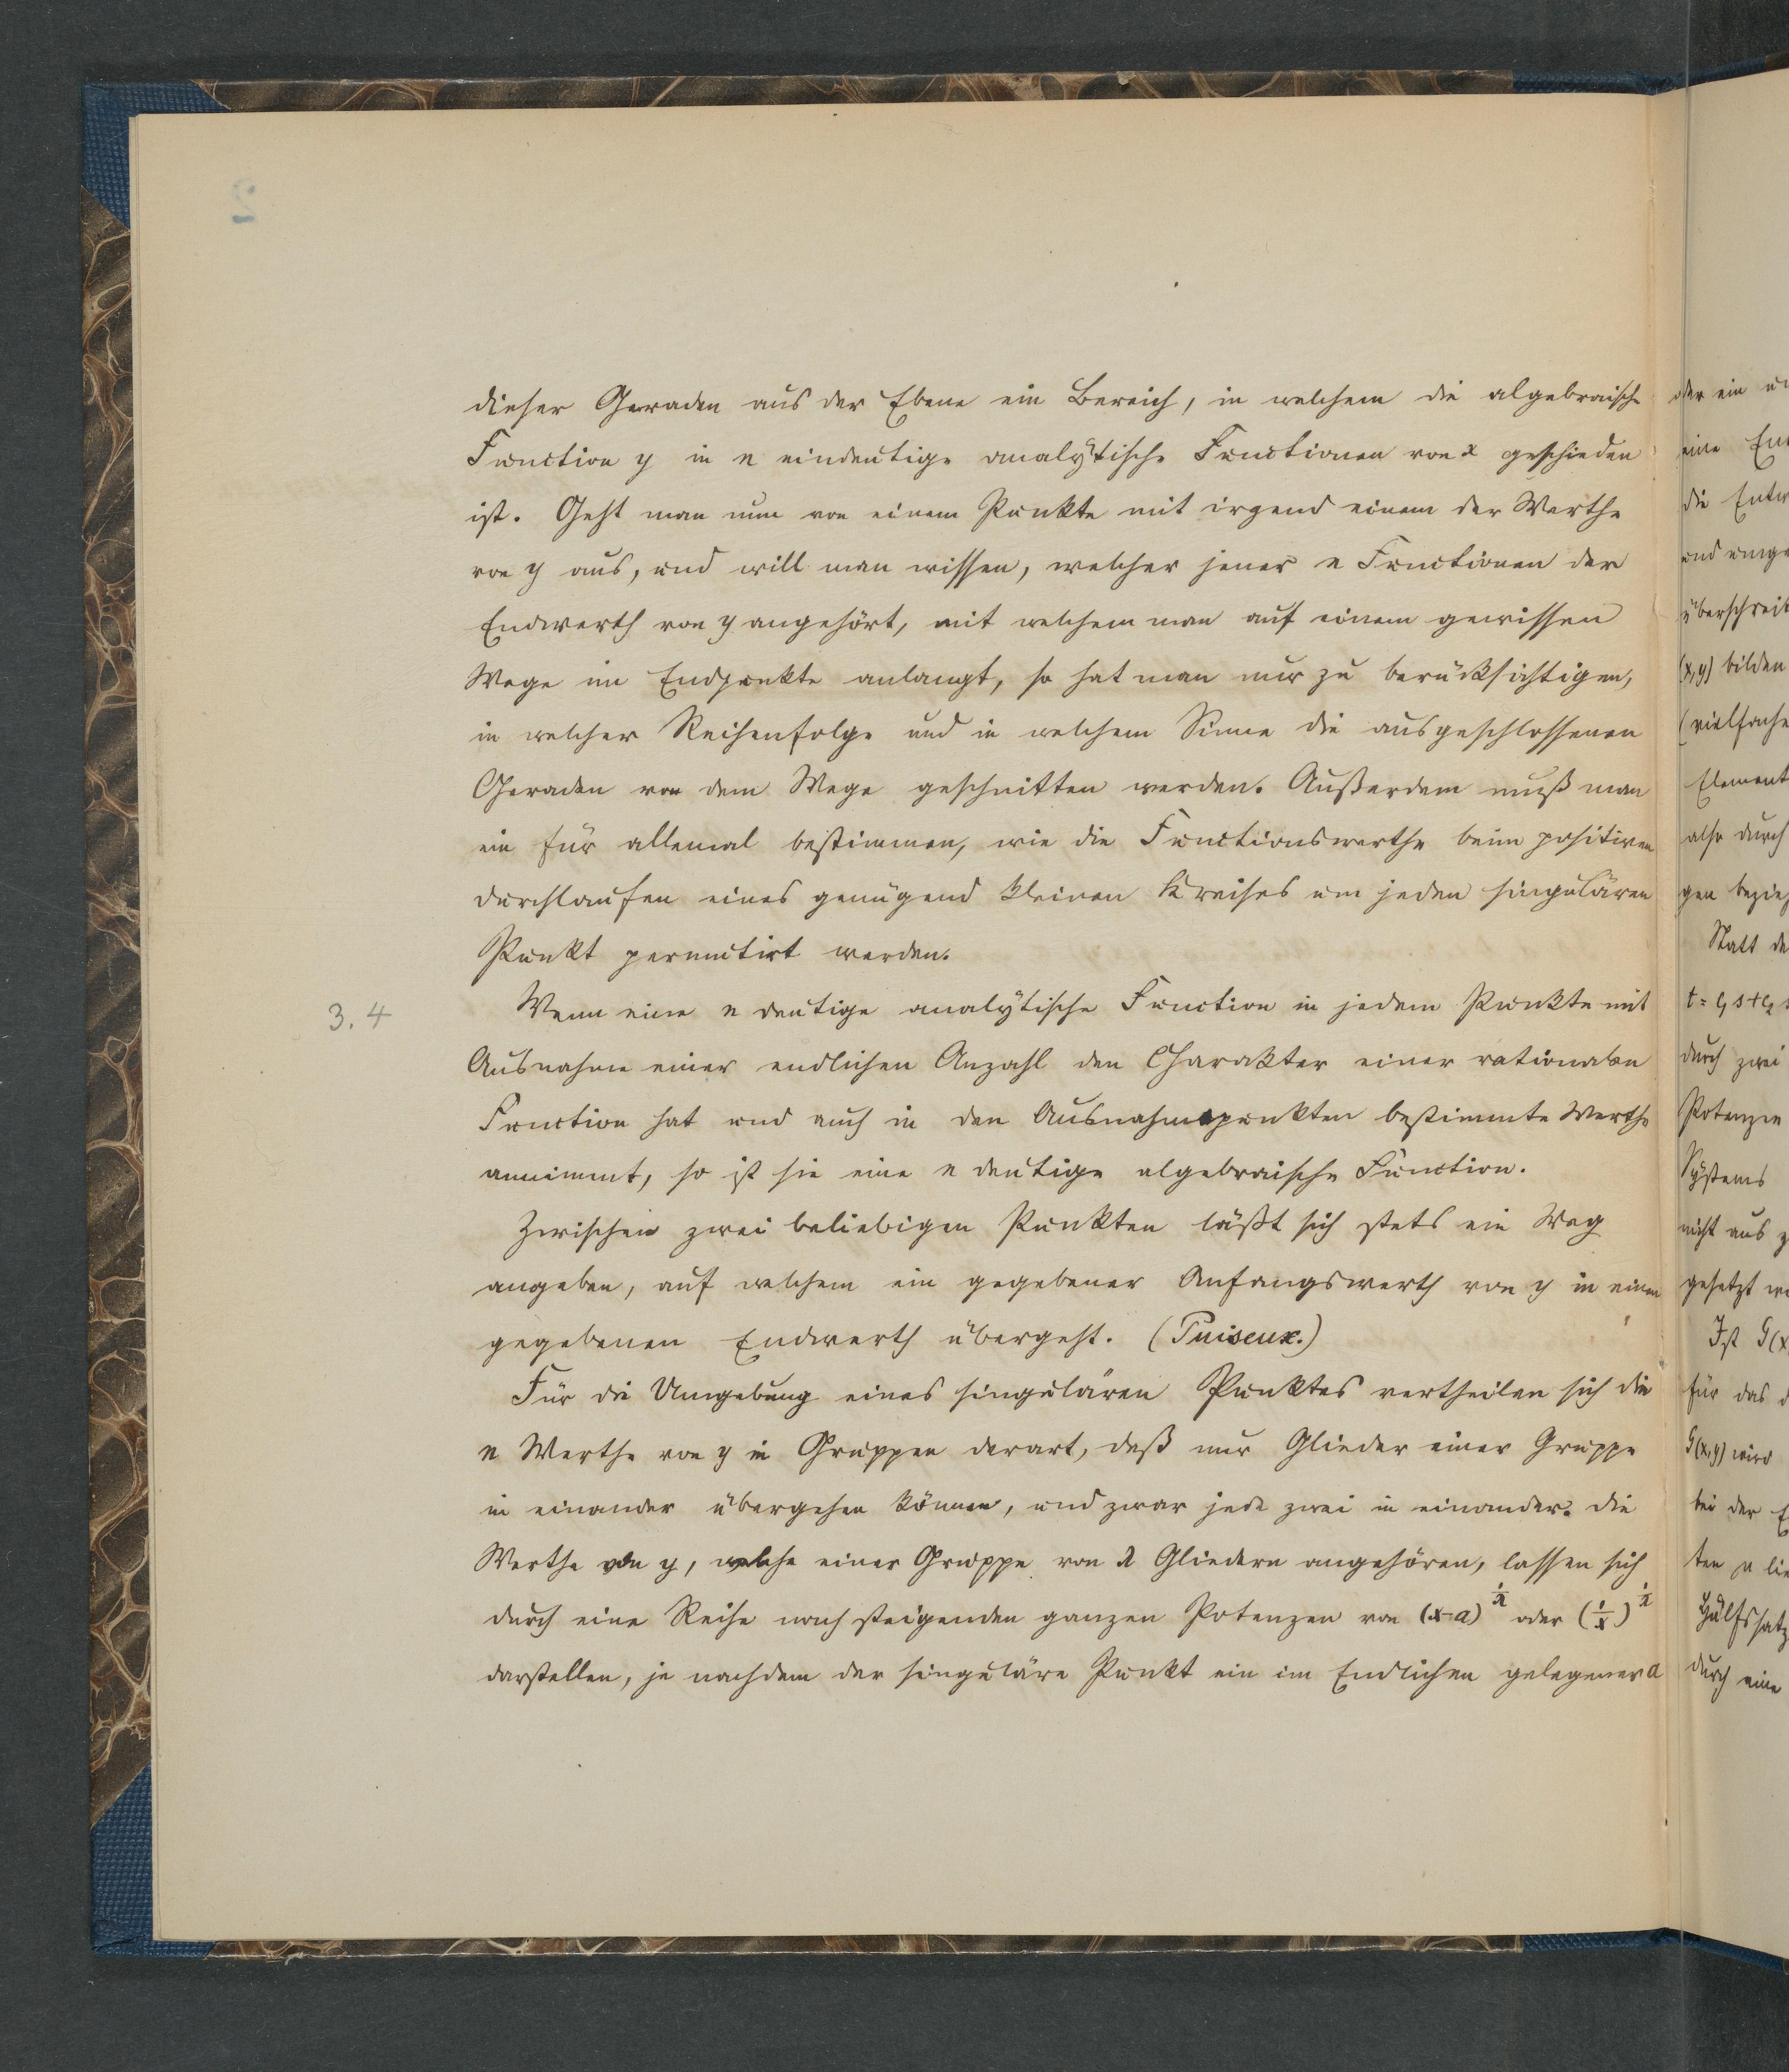 dieser Geraden aus der Ebene ein Bereich, in welchem die algebraische
Function y in n eindeutige analytische Functionen von x geschieden
ist. Geht man nun von einem Punkte mit irgend einem der Werthe
von y aus, und will man wissen, welcher jener n Functionen der
Endwerth von y angehört, mit welchem man auf einem gewissen
Wege im Endpunkte anlangt, so hat man nur zu berücksichtigen,
in welcher Reihenfolge und in welchem Sinne die ausgeschlossenen
Geraden von dem Wege geschnitten werden. Außerdem muß man
ein für allemal bestimmen, wie die Functionswerthe beim positiven
Durchlaufen eines genügend kleinen Kreises um jeden singulären
Punkt permutirt werden.
3. 4
Wenn eine n deutige analytische Function in jedem Punkte mit
Ausnahme einer endlichen Anzahl den Charakter einer rationalen
Function hat und auch in den Ausnahmepunkten bestimmte Werthe
annimmt, so ist sie eine n deutige algebraische Function.
Zwischen zwei beliebigen Punkten läßt sich stets ein Weg
angeben, auf welchem ein gegebener Anfangswerth von y in einen
gegebenen Endwerth übergeht. (Puiseux.)
Für die Umgebung eines singulären Punktes vertheilen sich die
n Werthe von y in Gruppen derart, daß nur Glieder einer Gruppe
in einander übergehen können, und zwar jede zwei in einander. Die
Werthe von y, welche einer Gruppe von λ Gliedern angehören, lassen sich
durch eine Reihe nach steigenden ganzen Potenzen von (x-a)^{1/λ} oder (1/x)^{1/λ}
darstellen, je nachdem der singuläre Punkt ein im Endlichen gelegener a
oder ein
eine
die
und
überschreit
(x,y) bilden
(vielfache
Element
also durch
gen
Statt
durch zwei
Potenzen
Systems
nicht aus
gesetzt
Ist G(x
für das
G(x,y) wird
bei der
ten
Hülfssatz
durch eine
2